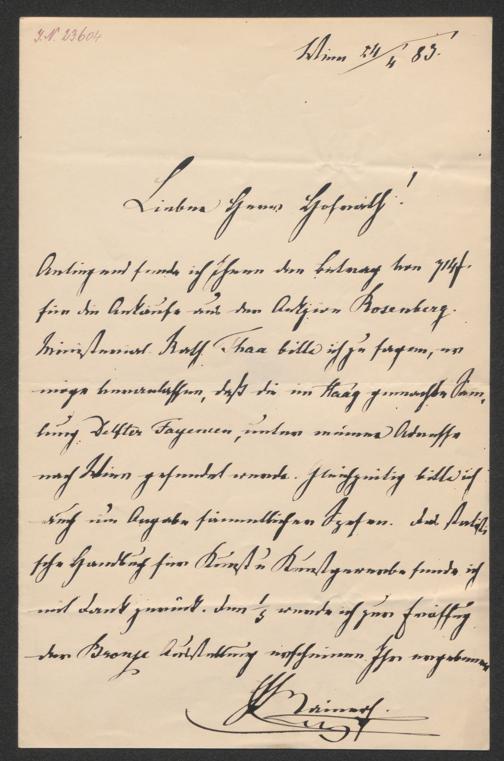 J.N. 23604
Wien 24/4 83.
Lieber Herr Hofrath!
Anliegend sende ich Ihnen den Betrag von 714f.
für die Ankäufe aus der Auktion Rosenberg.
Ministerial Rath Thaa bitte ich zu sagen, er
möge veranlassen, daß die im Haag gemachte Sam-
lung Delfter Fayencen, unter meiner Adresse
nach Wien gesendet werde. Gleichzeitig bitte ich
auch um Angabe sämmtlicher Spesen. Das statisti-
sche Handbuch für Kunst u Kunstgewerbe sende ich
mit Dank zurück. Den 1/5 werde ich zur Eröffnung
der Bronze Ausstellung erscheinen. Ihr ergebener